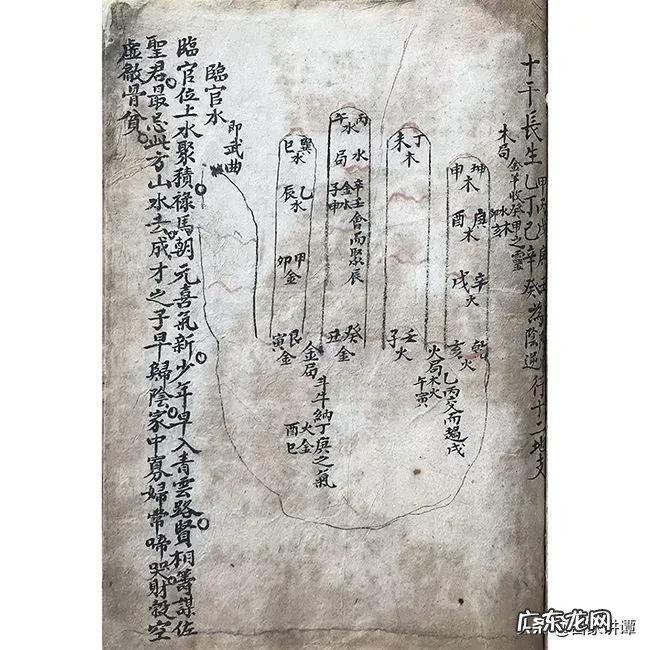 十干長生
乙丁己辛癸為陰逆行十二地支
木局
金羊收癸甲之靈
水木
卯亥
坤木
申
庚木
酉
辛火
戌
乾火
亥
火局
乙丙交而趨戌
木火
午寅
丁木
未
壬火
子
丙水
午水
局
辛壬會而聚辰
金水
子申
癸金
丑
巽水
巳
乙水
辰
甲金
卯
艮金
寅
金局
斗牛納丁庚之氣
火金
酉巳
臨官水
即武曲
臨官位上水聚積祿馬朝元喜氣新少年早入青雲路賢相籌謀佐
聖君最忌此方山水去成才之子早歸陰家中寡婦常啼哭財穀空
虛徹骨貧
广东龙网